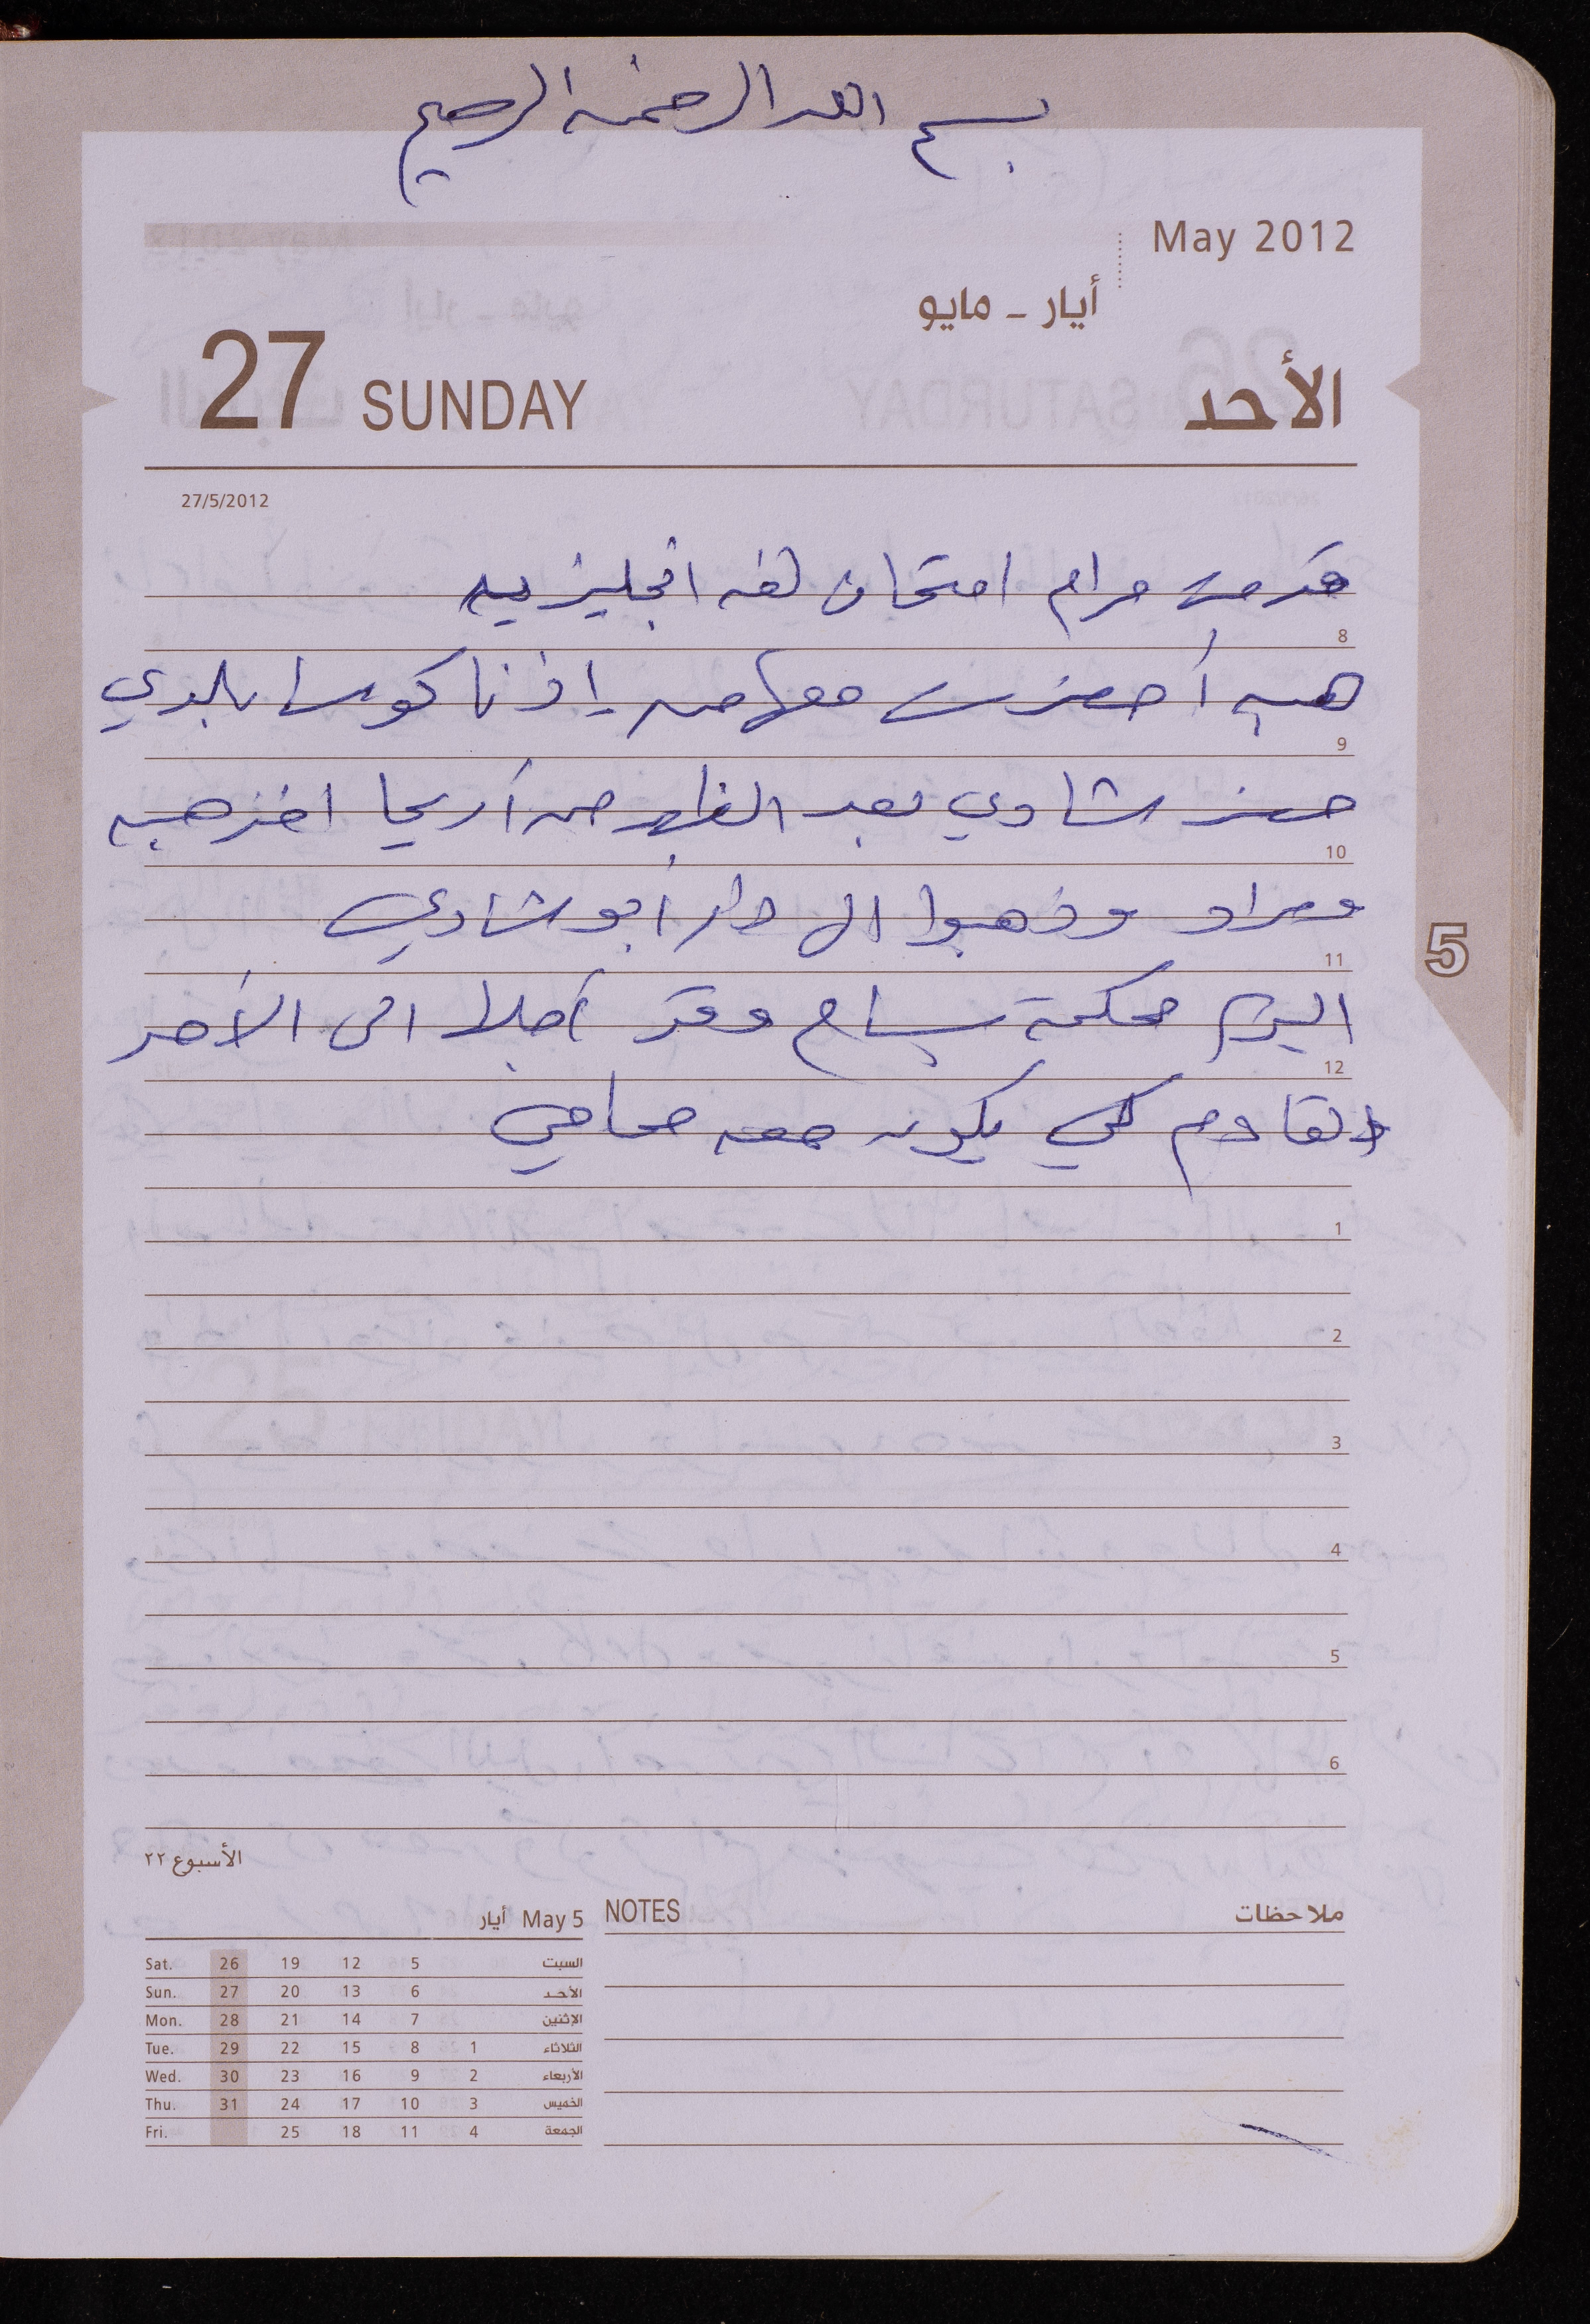 بسم الله الرحمن الرحيم
May 2012
أيار - مايو
27 SUNDAY الأحد
27/5/2012
قدمت مرام امتحان لغه انجليزيه
8
هبه أحضرت معها من إذنا كوسا بلدي
9
حضر شادي بعد الظهر من أريحا اخذ هبه
10
ومراد وذهبوا الى دار ابو شادي
11
اليوم محكمة بسام وقد أجلا الى الأحد
12
القادم لكي يكون معه محامي
1
2
3
4
5
6
5
الأسبوع ٢٢
May 5 أيار
Sat. 26 19 12 5 السبت
Sun. 27 20 13 6 الأحد
Mon. 28 21 14 7 الإثنين
Tue. 29 22 15 8 1 الثلاثاء
Wed. 30 23 16 9 2 الأربعاء
Thu. 31 24 17 10 3 الخميس
Fri. 25 18 11 4 الجمعة
NOTES ملاحظات